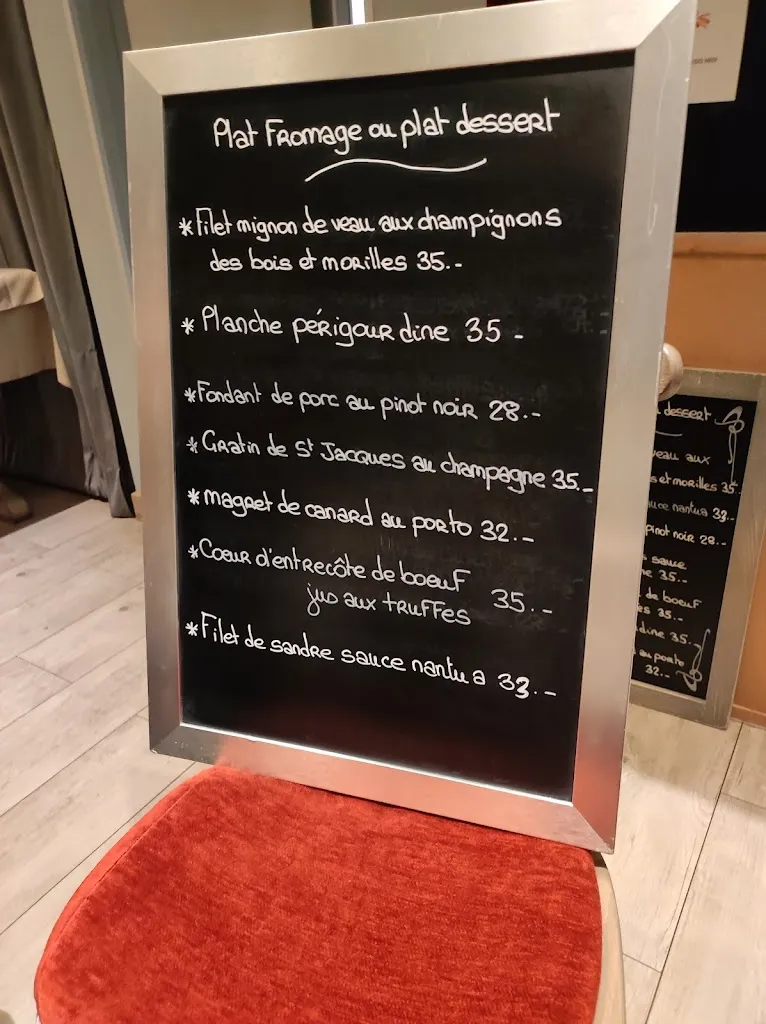 Plat Fromage ou plat dessert
*Filet mignon de veau aux champignons
des bois et morilles 35.-
* Planche périgour dine 35 -
*Fondant de porc au pinot noir 28.-
* Gratin de St Jacques au champagne 35.-
*magret de canard au porto 32.-
*Coeur d'entrecôte de boeuf 35.-
jus aux truffes
*Filet de sandre sauce nantua 33.-
dessert
veau aux
et morilles 35.
nantua 33.-
pinot noir 28.-
sauce
35.-
de boeuf
35.-
dine 35.-
au porto
32.-